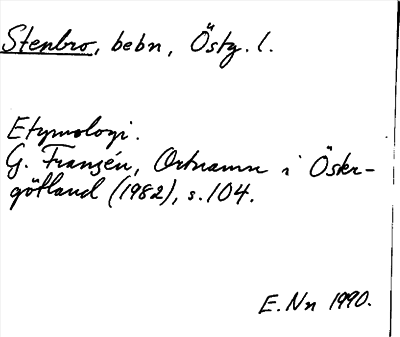 Stenbro, bebn, Östg. l.
Etymologi.
G. Franzén, Ortnamn i Öster-
götland (1982), s. 104.
E. Nn 1990.